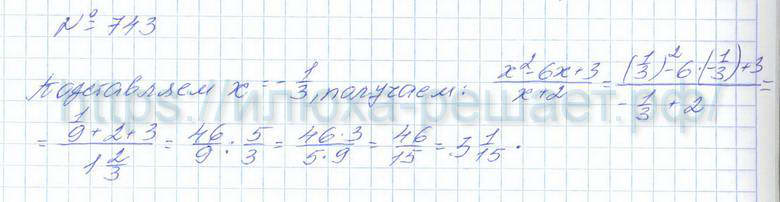 № 743
Подставляем x = -1/3, получаем: (x² - 6x + 3)/(x + 2) = ((1/3)² - 6·(-1/3) + 3)/(-1/3 + 2) =
= (1/9 + 2 + 3)/(1 2/3) = 46/9 : 5/3 = (46·3)/(5·9) = 46/15 = 3 1/15.
https://илюха-решает.рф/